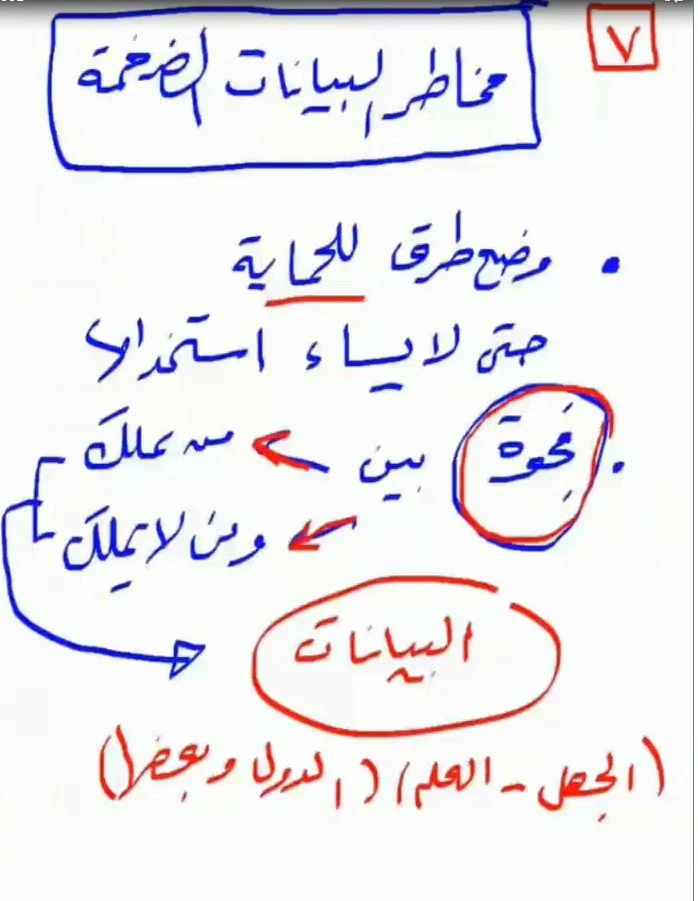 ٧
مخاطر البيانات الضخمة
• وضع طرق للحماية
حتى لا يساء استخدامها
• فجوة بين من يملك
ومن لا يملك
البيانات
(الجهل - العلم) (الدول وبعضها)